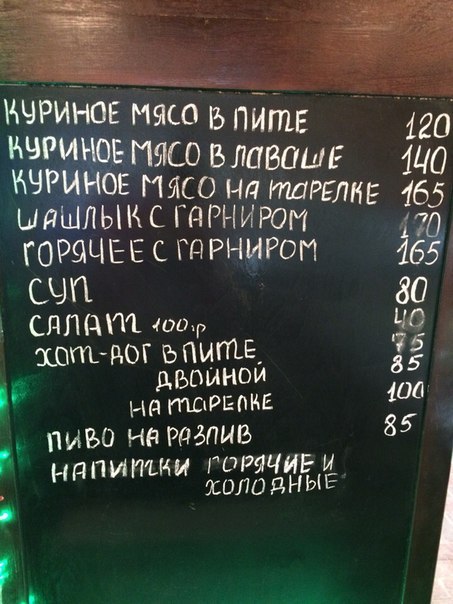 КУРИНОЕ МЯСО В ПИТЕ 120
КУРИНОЕ МЯСО В ЛАВАШЕ 140
КУРИНОЕ МЯСО НА ТАРЕЛКЕ 165
ШАШЛЫК С ГАРНИРОМ 170
ГОРЯЧЕЕ С ГАРНИРОМ 165
СУП 80
САЛАТ 100гр 40
ХОТ-ДОГ В ПИТЕ 75
ДВОЙНОЙ 85
НА ТАРЕЛКЕ 100
ПИВО НА РАЗЛИВ 85
НАПИТКИ ГОРЯЧИЕ И
ХОЛОДНЫЕ